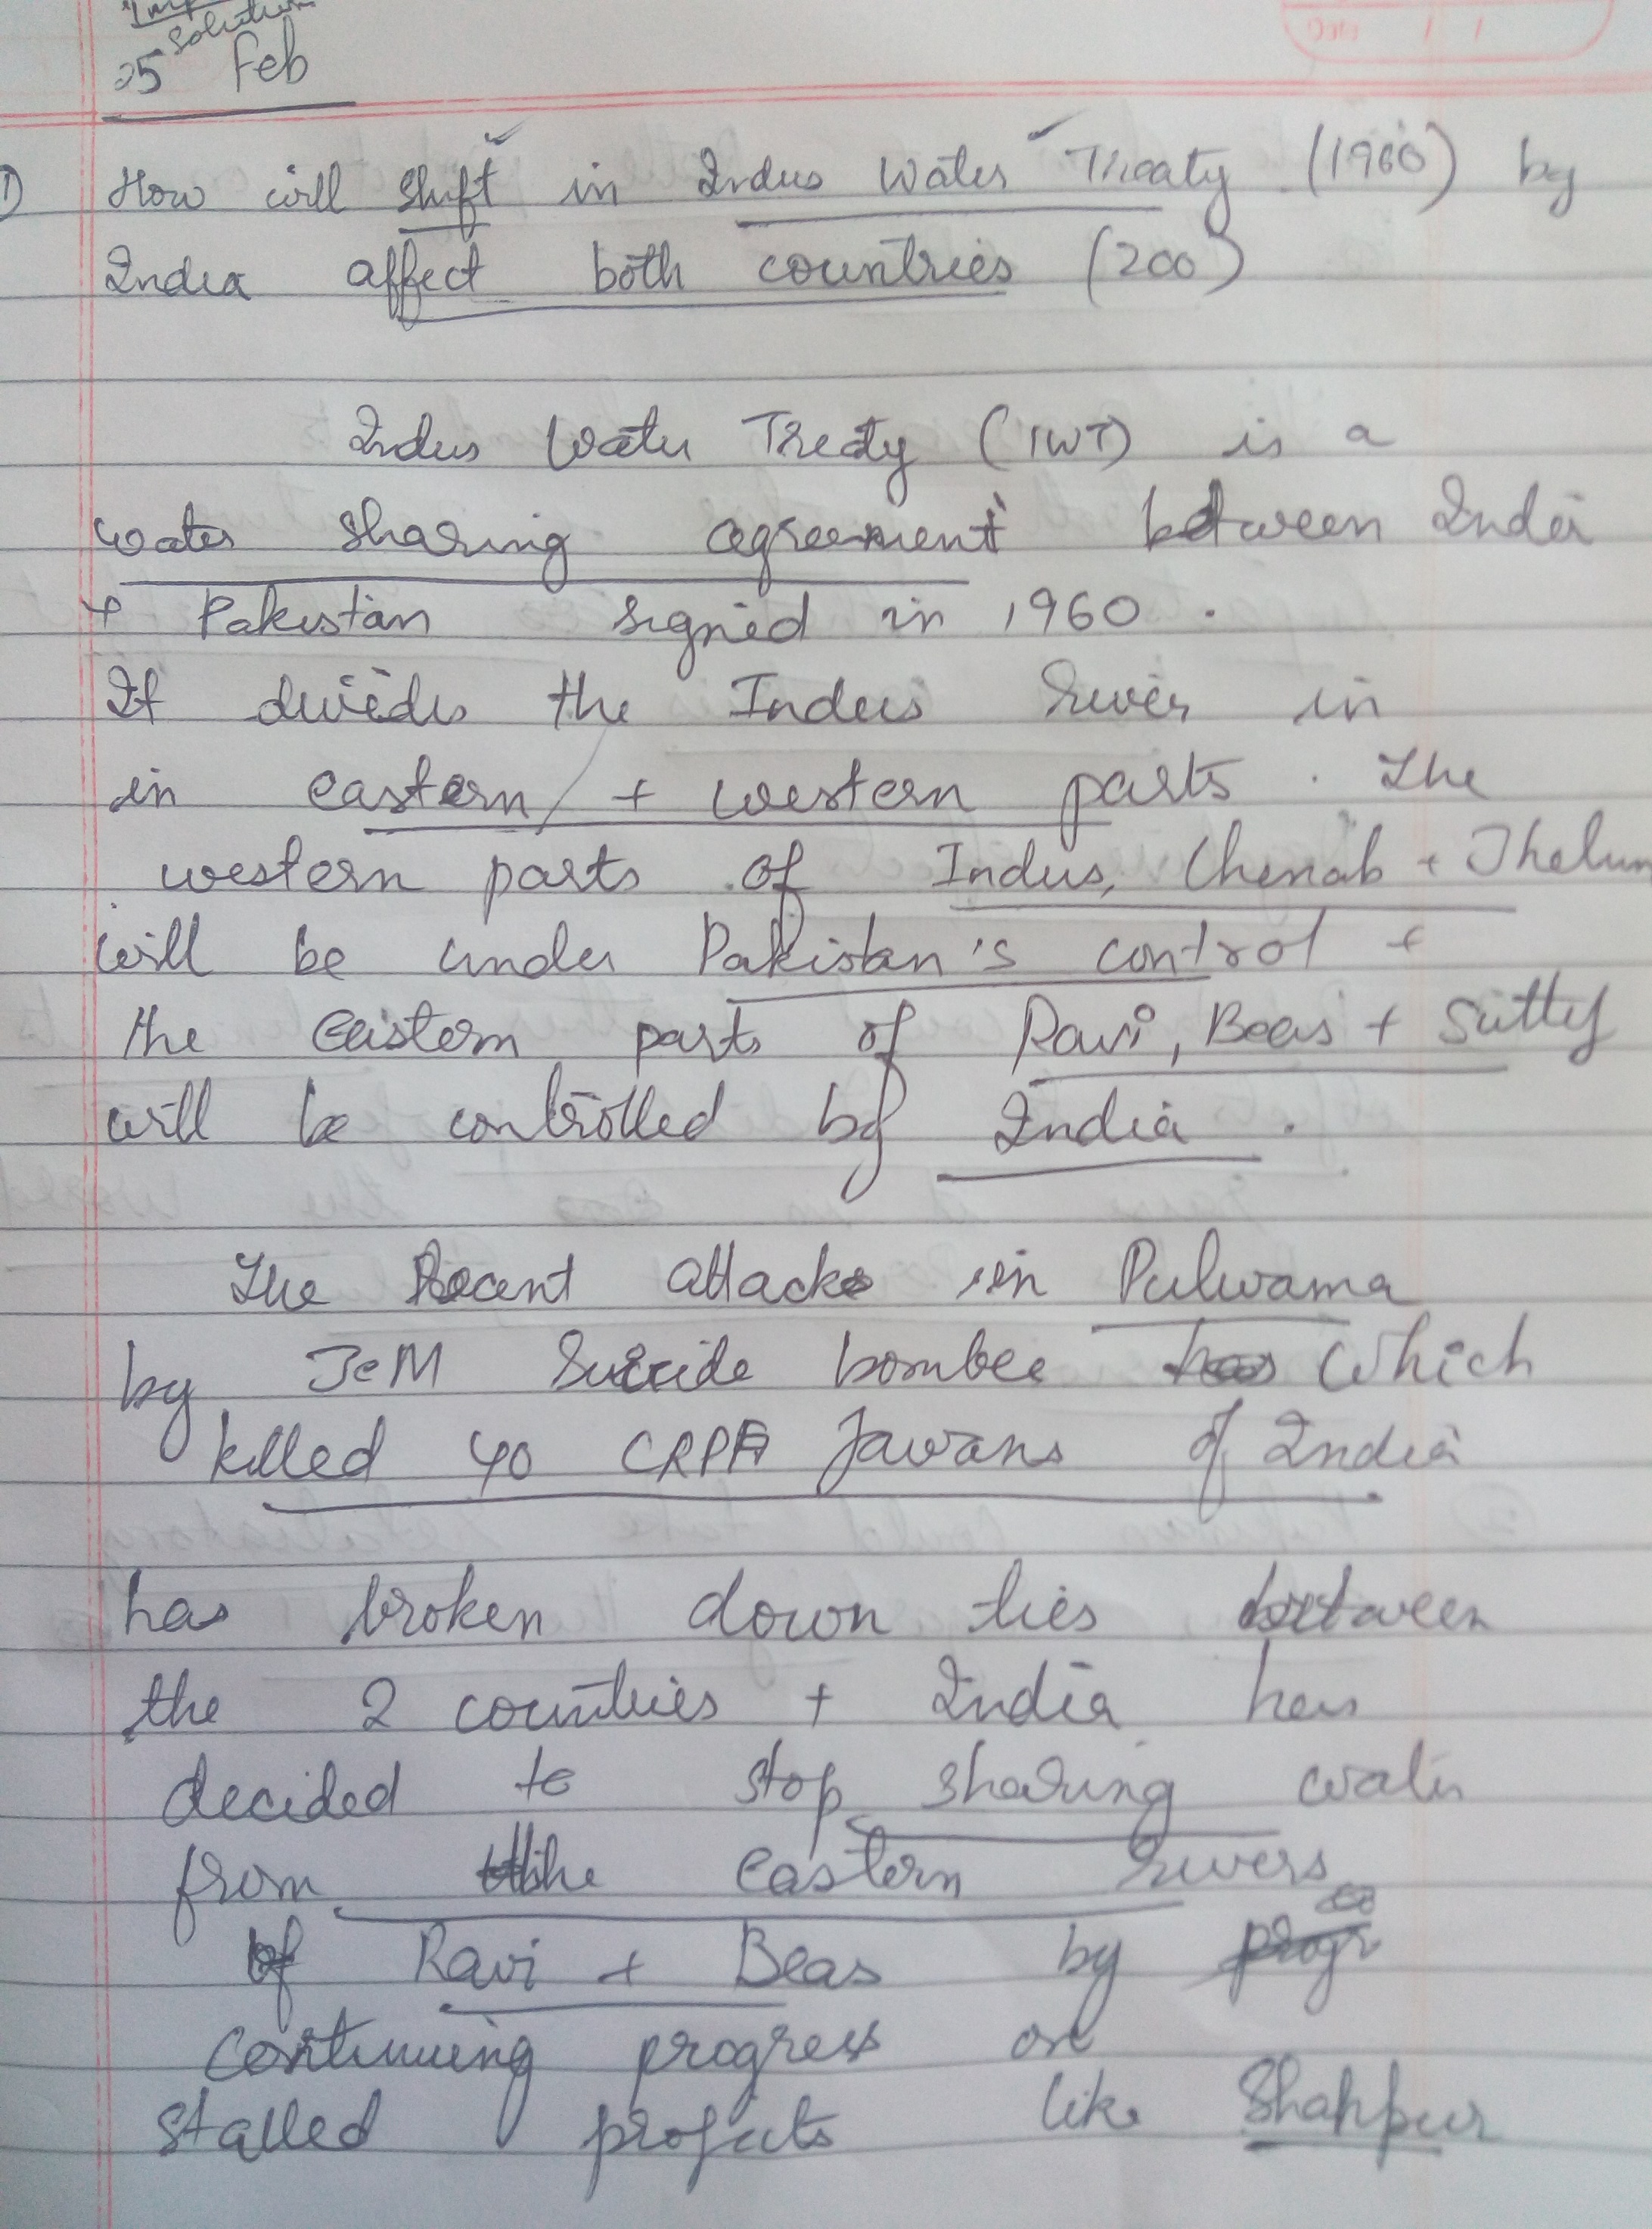 Solution
25 Feb
1) How will shift in Indus Water Treaty (1960) by
India affect both countries (200)
Indus Water Treaty (IWT) is a
water sharing agreement between India
+ Pakistan signed in 1960.
It divides the Indus river in
in eastern + western parts. The
western parts of Indus, Chenab + Jhelum
will be under Pakistan's control +
the eastern parts of Ravi, Beas + Sutlej
will be controlled by India.
The Recent attacks in Pulwama
by JeM Suicide bomber which
killed 40 CRPF Jawans of India
has broken down ties between
the 2 countries + India has
decided to stop sharing water
from the eastern rivers
of Ravi + Beas by
continuing progress on
stalled projects like Shahpur